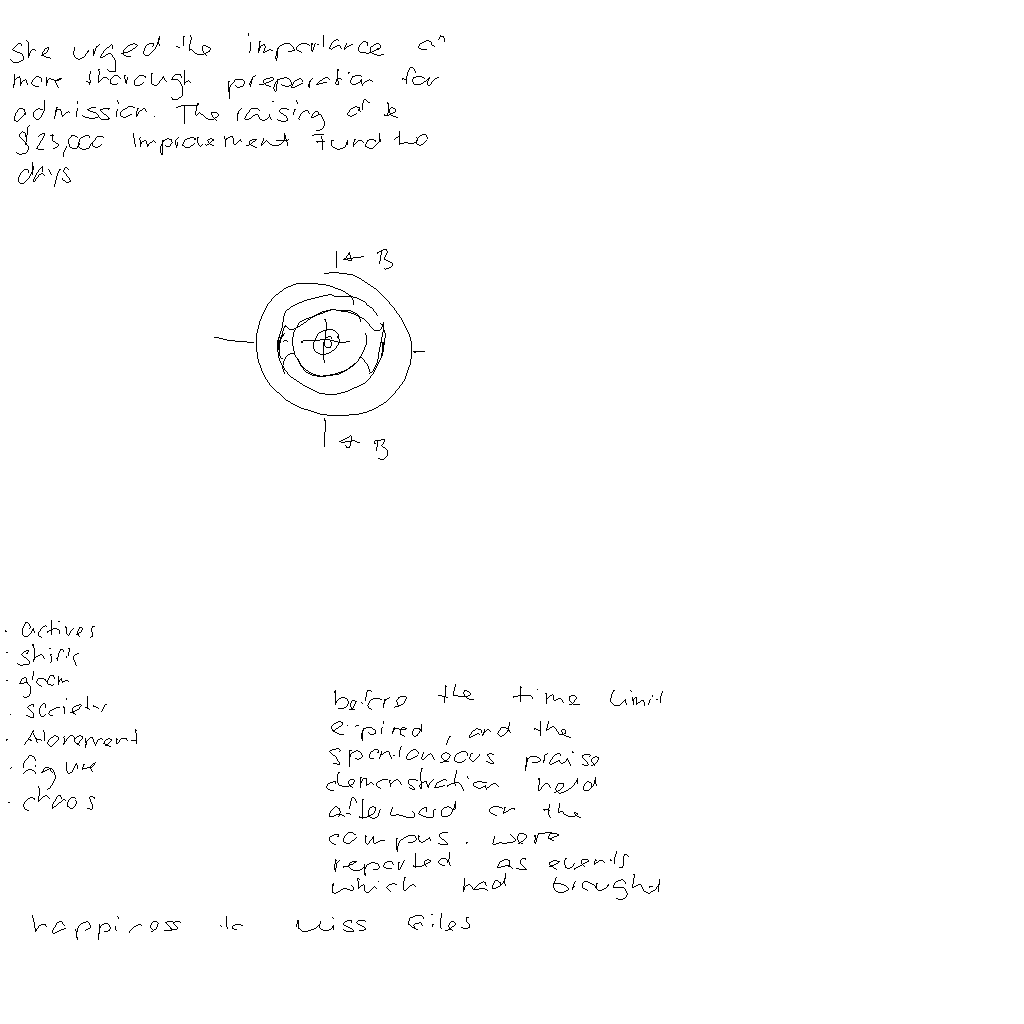 She urged the importance of
more thorough preparation for
admission. The raising of the
$25,000 Improvement Fund two
days
B
B
· actives
· shirk
· gleam
· society
· Atonement
· figure
· chaos
before the time limit
expired, and the
spontaneous praise
demonstration held
afterward on the
campus. were
reported as events
which had brought
happiness to Miss Giles